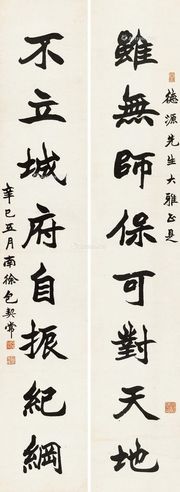 德源先生大雅正是
雖無師保可對天地
不立城府自振紀綱
辛巳五月南徐包契常